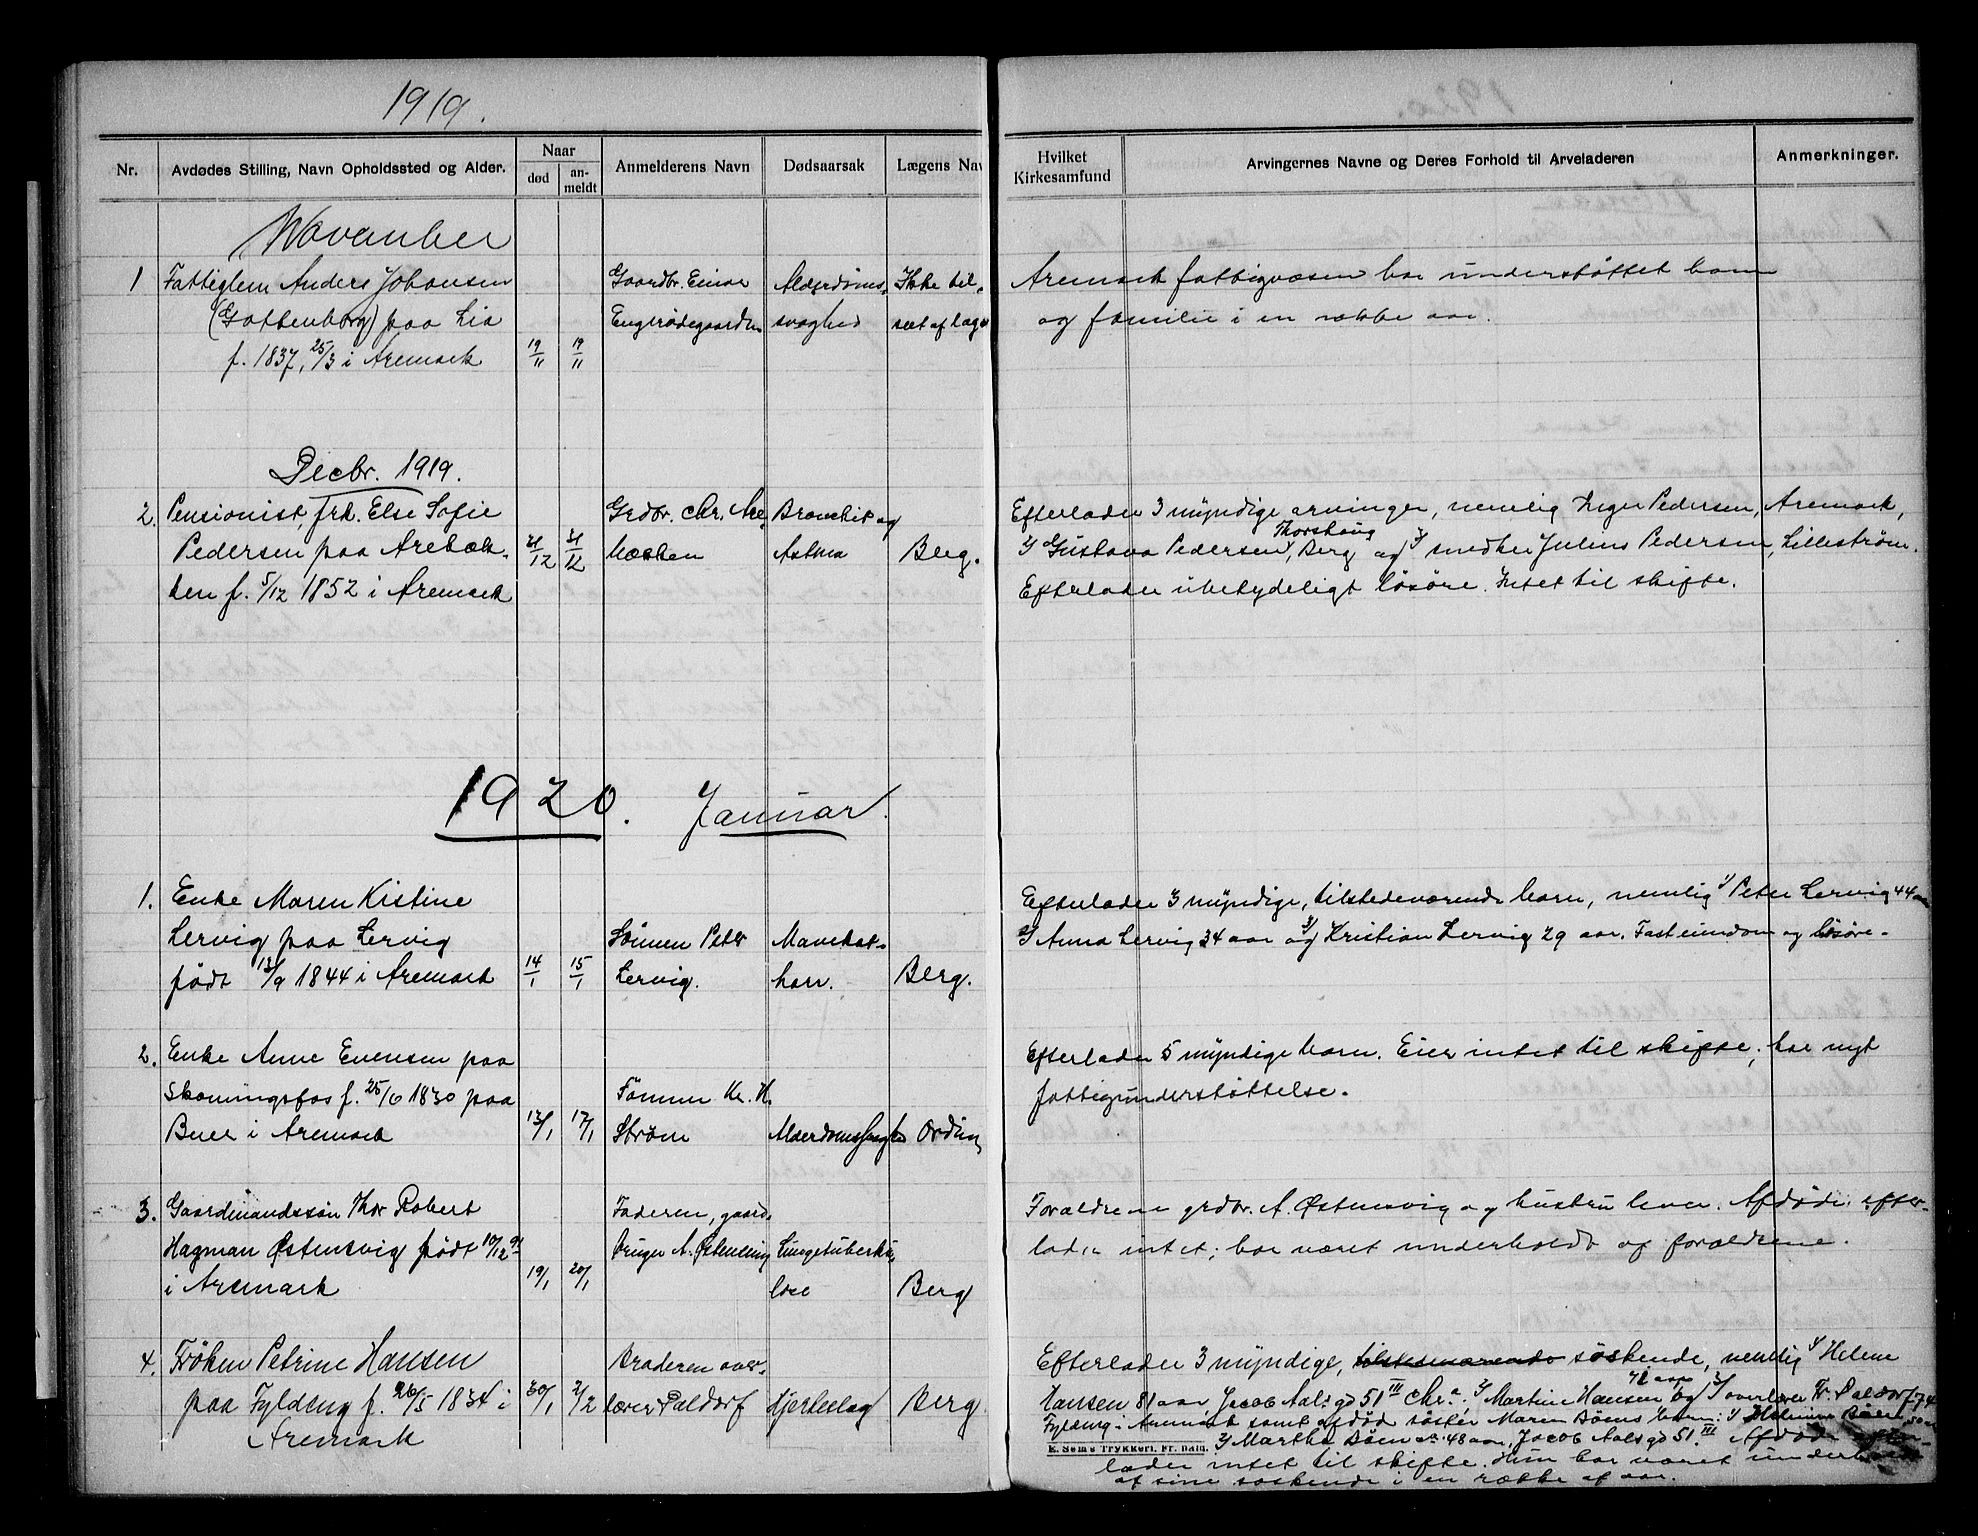 1919.
Nr.
Avdødes Stilling, Navn Opholdssted og Alder.
Naar
død
an-
meldt
Anmelderens Navn
Dødsaarsak
Lægens Nav
Hvilket
Kirkesamfund
Arvingernes Navne og Deres Forhold til Arveladeren
Anmerkninger.
November
1 Fattiglem Anders Johansen
(Gottenborg) paa Lia
f. 1837, 25/3 i Aremark
19/11
19/11
Gaardbr. Einar
Engerødegaarden
Alderdoms-
svaghed
Ikke til-
seet af læge
Aremark fattigvæsen har understøttet ham
og familie i en række aar.
Decbr. 1919.
2. Pensionist, frk. Else Sofie
Pedersen paa Arebæk-
ken f. 5/12 1852 i Aremark
21/12
21/12
Grdbr. Chr. Are
bækken
Bronchit og
Astma
Berg.
Efterlader 3 myndige arvinger, nemlig Inger Pedersen, Aremark,
2) Gustava Pedersen, Thorshaug, Berg og 3) snedker Julius Pedersen, Lillestrøm.
Efterlader ubetydeligt løsøre. Intet til skifte.
1920. Januar.
1. Enke Maren Kistine
Lervig paa Lervig
født 13/9 1844 i Aremark
14/1
15/1
Sönnen Peter
Lervig.
Mavekat-
harr.
Berg.
Efterlader 3 myndige, tilstedeværende barn, nemlig 1) Peter Lervig 44 aar
2) Anna Lervig 34 aar og 3) Kristian Lervig 29 aar. Fast eiendom og løsøre.
2. Enke Anne Evensen paa
Skomingsfos f. 25/6 1830 paa
Buer i Aremark
13/1
17/1
Kr. H.
Strøm
Ording
Efterlader 5 myndige barn. Eier intet til skifte; har nydt
fattigunderstøttelse.
3. Gaardmandssøn Thor Robert
Hagman Østensvig født 10/12 91
i Aremark
19/1
20/1
Faderen, gaard-
bruger A. Østensvig
Lungetuberku-
lose
Berg
Forældrene grdbr. A. Østensvig og hustru lever. Afdøde efter-
lader intet; har været underholdt af forældrene.
4. Frøken Petrine Hansen
paa Fyldeng f. 26/5 1834 i
Aremark
30/1
2/2
Broderen over-
lærer Paldorf
Hjerteslag
Berg
Efterlader 3 myndige, tilstedeværende søskende, nemlig 1) Helene
Hansen 81 aar, Jacob Aalsgd 51 III Chr.a 2) Martine Hansen 72 aar og 3) overlærer Fr. Paldorf 74
Fyldeng i Aremark samt afdød søster Maren Bøens barn: 1) Bøen 50 aar
E. Sems Trykkeri, Fr. hald.
2) Martha Bøen 48 aar, Jacob Aalsgd 51 III Afdøde efter-
lader intet til skifte. Hun har været underholdt
af sine søskende i en række af aar.